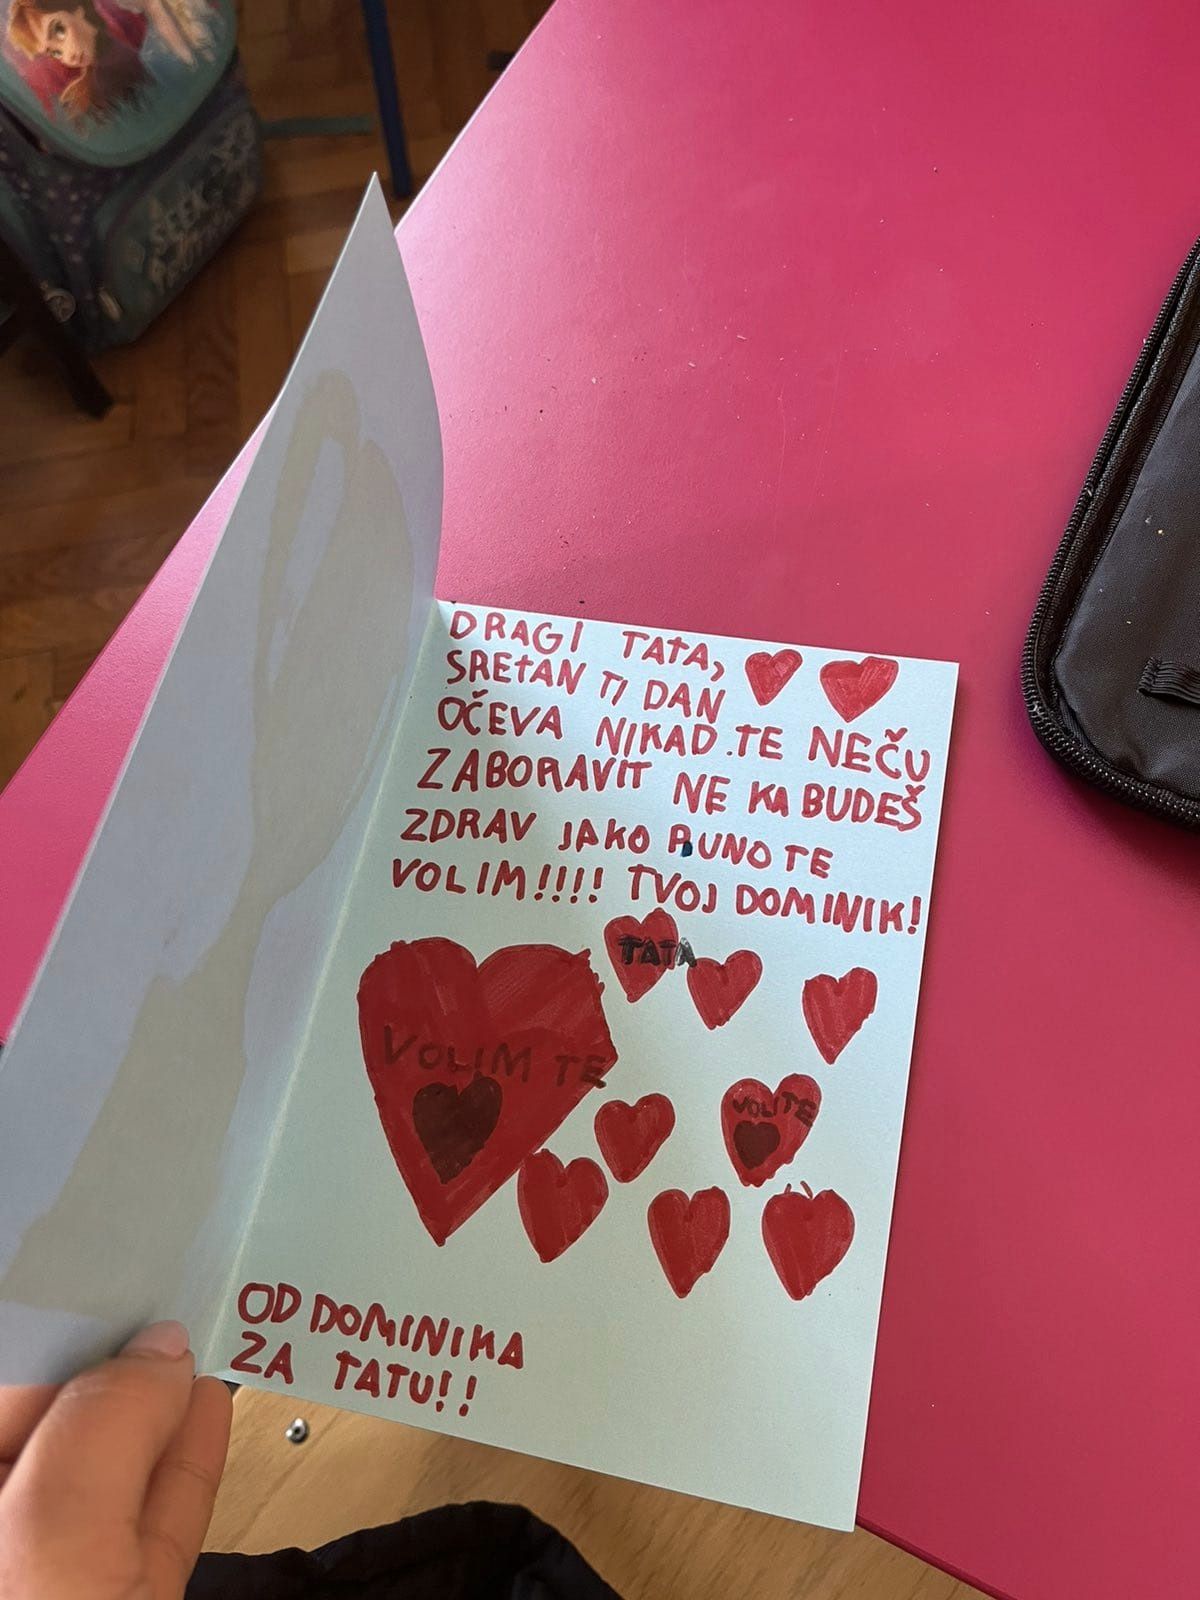 DRAGI TATA,
SRETAN TI DAN
OČEVA NIKAD.TE NEČU
ZABORAVIT NE KA BUDEŠ
ZDRAV JAKO PUNO TE
VOLIM!!!! TVOJ DOMINIK!
TATA
VOLIM TE
VOLITE
OD DOMINIKA
ZA TATU!!
SEEK